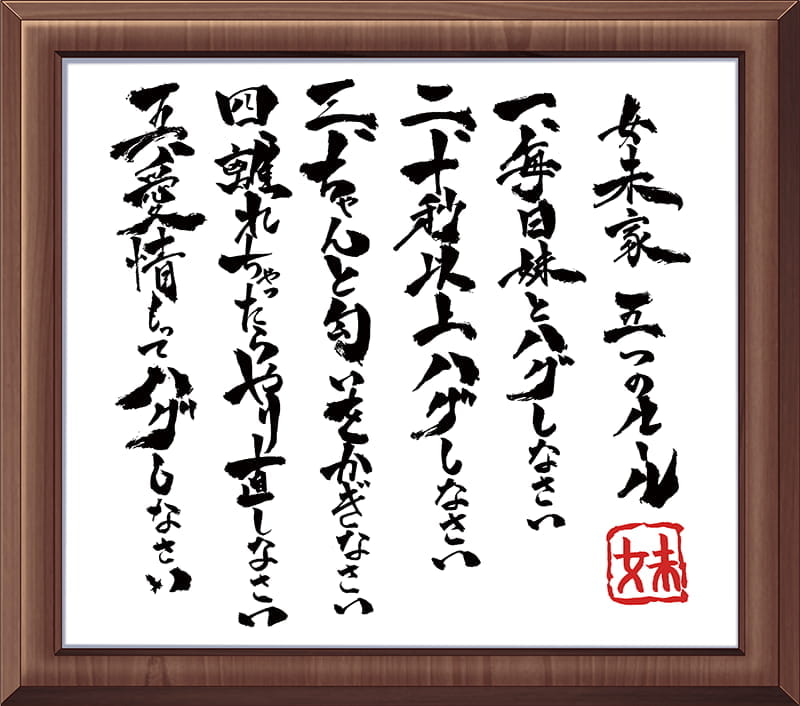 女未家 五つのルール
一、毎日妹とハグしなさい
二、十秒以上ハグしなさい
三、ちゃんと匂いをかぎなさい
四、離れちゃったらやり直しなさい
五、愛情もってハグしなさい
妹